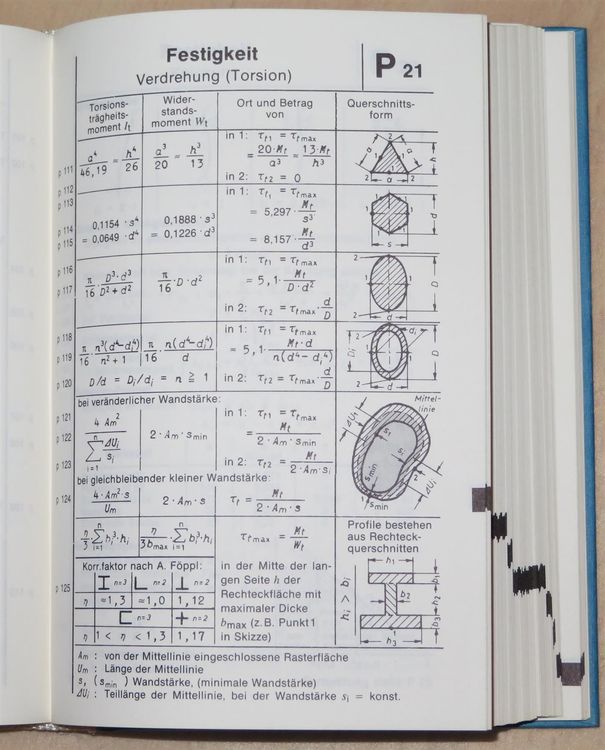 Festigkeit
Verdrehung (Torsion)
P 21
Torsions-
trägheits-
moment It
Wider-
stands-
moment Wt
Ort und Betrag
von
Querschnitts-
form
p 111
a⁴/46,19 = h⁴/26
a³/20 = h³/13
in 1: τt1 = τt max
= 20·Mt/a³ = 13·Mt/h³
in 2: τt2 = 0
p 112
p 113
p 114
p 115
0,1154 · s⁴
= 0,0649 · d⁴
0,1888 · s³
= 0,1226 · d³
in 1: τt1 = τt max
= 5,297 · Mt/s³
= 8,157 · Mt/d³
p 116
p 117
π/16 · D³·d³/D²+d²
π/16 · D · d²
in 1: τt1 = τt max
= 5,1 · Mt/D·d²
in 2: τt2 = τt max · d/D
p 118
p 119
p 120
π/16 · n³(d⁴−di⁴)/n²+1
π/16 · n(d⁴−di⁴)/d
D/d = Di/di = n ≧ 1
in 1: τt1 = τt max
= 5,1 · Mt·d/n(d⁴−di⁴)
in 2: τt2 = τt max · d/D
bei veränderlicher Wandstärke:
p 121
p 122
p 123
4 Am²/∑ i=1 n ΔUi/si
2 · Am · smin
in 1: τt1 = τt max
= Mt/2 · Am · smin
in 2: τt2 = Mt/2 · Am · si
Mittel-
linie
bei gleichbleibender kleiner Wandstärke:
p 124
4 · Am² · s/Um
2 · Am · s
τt = Mt/2 · Am · s
p 125
η/3 ∑ i=1 n bi³·hi
η/3bmax ∑ i=1 n bi³·hi
τt max = Mt/Wt
Profile bestehen
aus Rechteck-
querschnitten
Korr.faktor nach A. Föppl:
n=3 n=2 n=2
η ≈1,3 ≈1,0 1,12
n=3 n=2
η 1 < η < 1,3 1,17
in der Mitte der lan-
gen Seite h der
Rechteckfläche mit
maximaler Dicke
bmax (z. B. Punkt 1
in Skizze)
hi > bi
h1
b1
b2
h2
b3
h3
Am : von der Mittellinie eingeschlossene Rasterfläche
Um : Länge der Mittellinie
s, (smin) Wandstärke, (minimale Wandstärke)
ΔUi : Teillänge der Mittellinie, bei der Wandstärke si = konst.